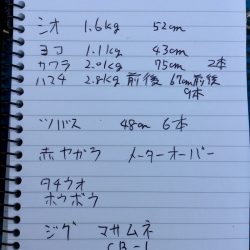 シオ 1.6kg 52cm
ヨコ 1.1kg 43cm
カワラ 2.01kg 75cm 2本
ハマチ 2.8kg前後 67cm前後
9本
ツバス 48cm 6本
赤ヤガラ メーターオーバー
タチウオ
ホウボウ
ジグ マサムネ
CB-1